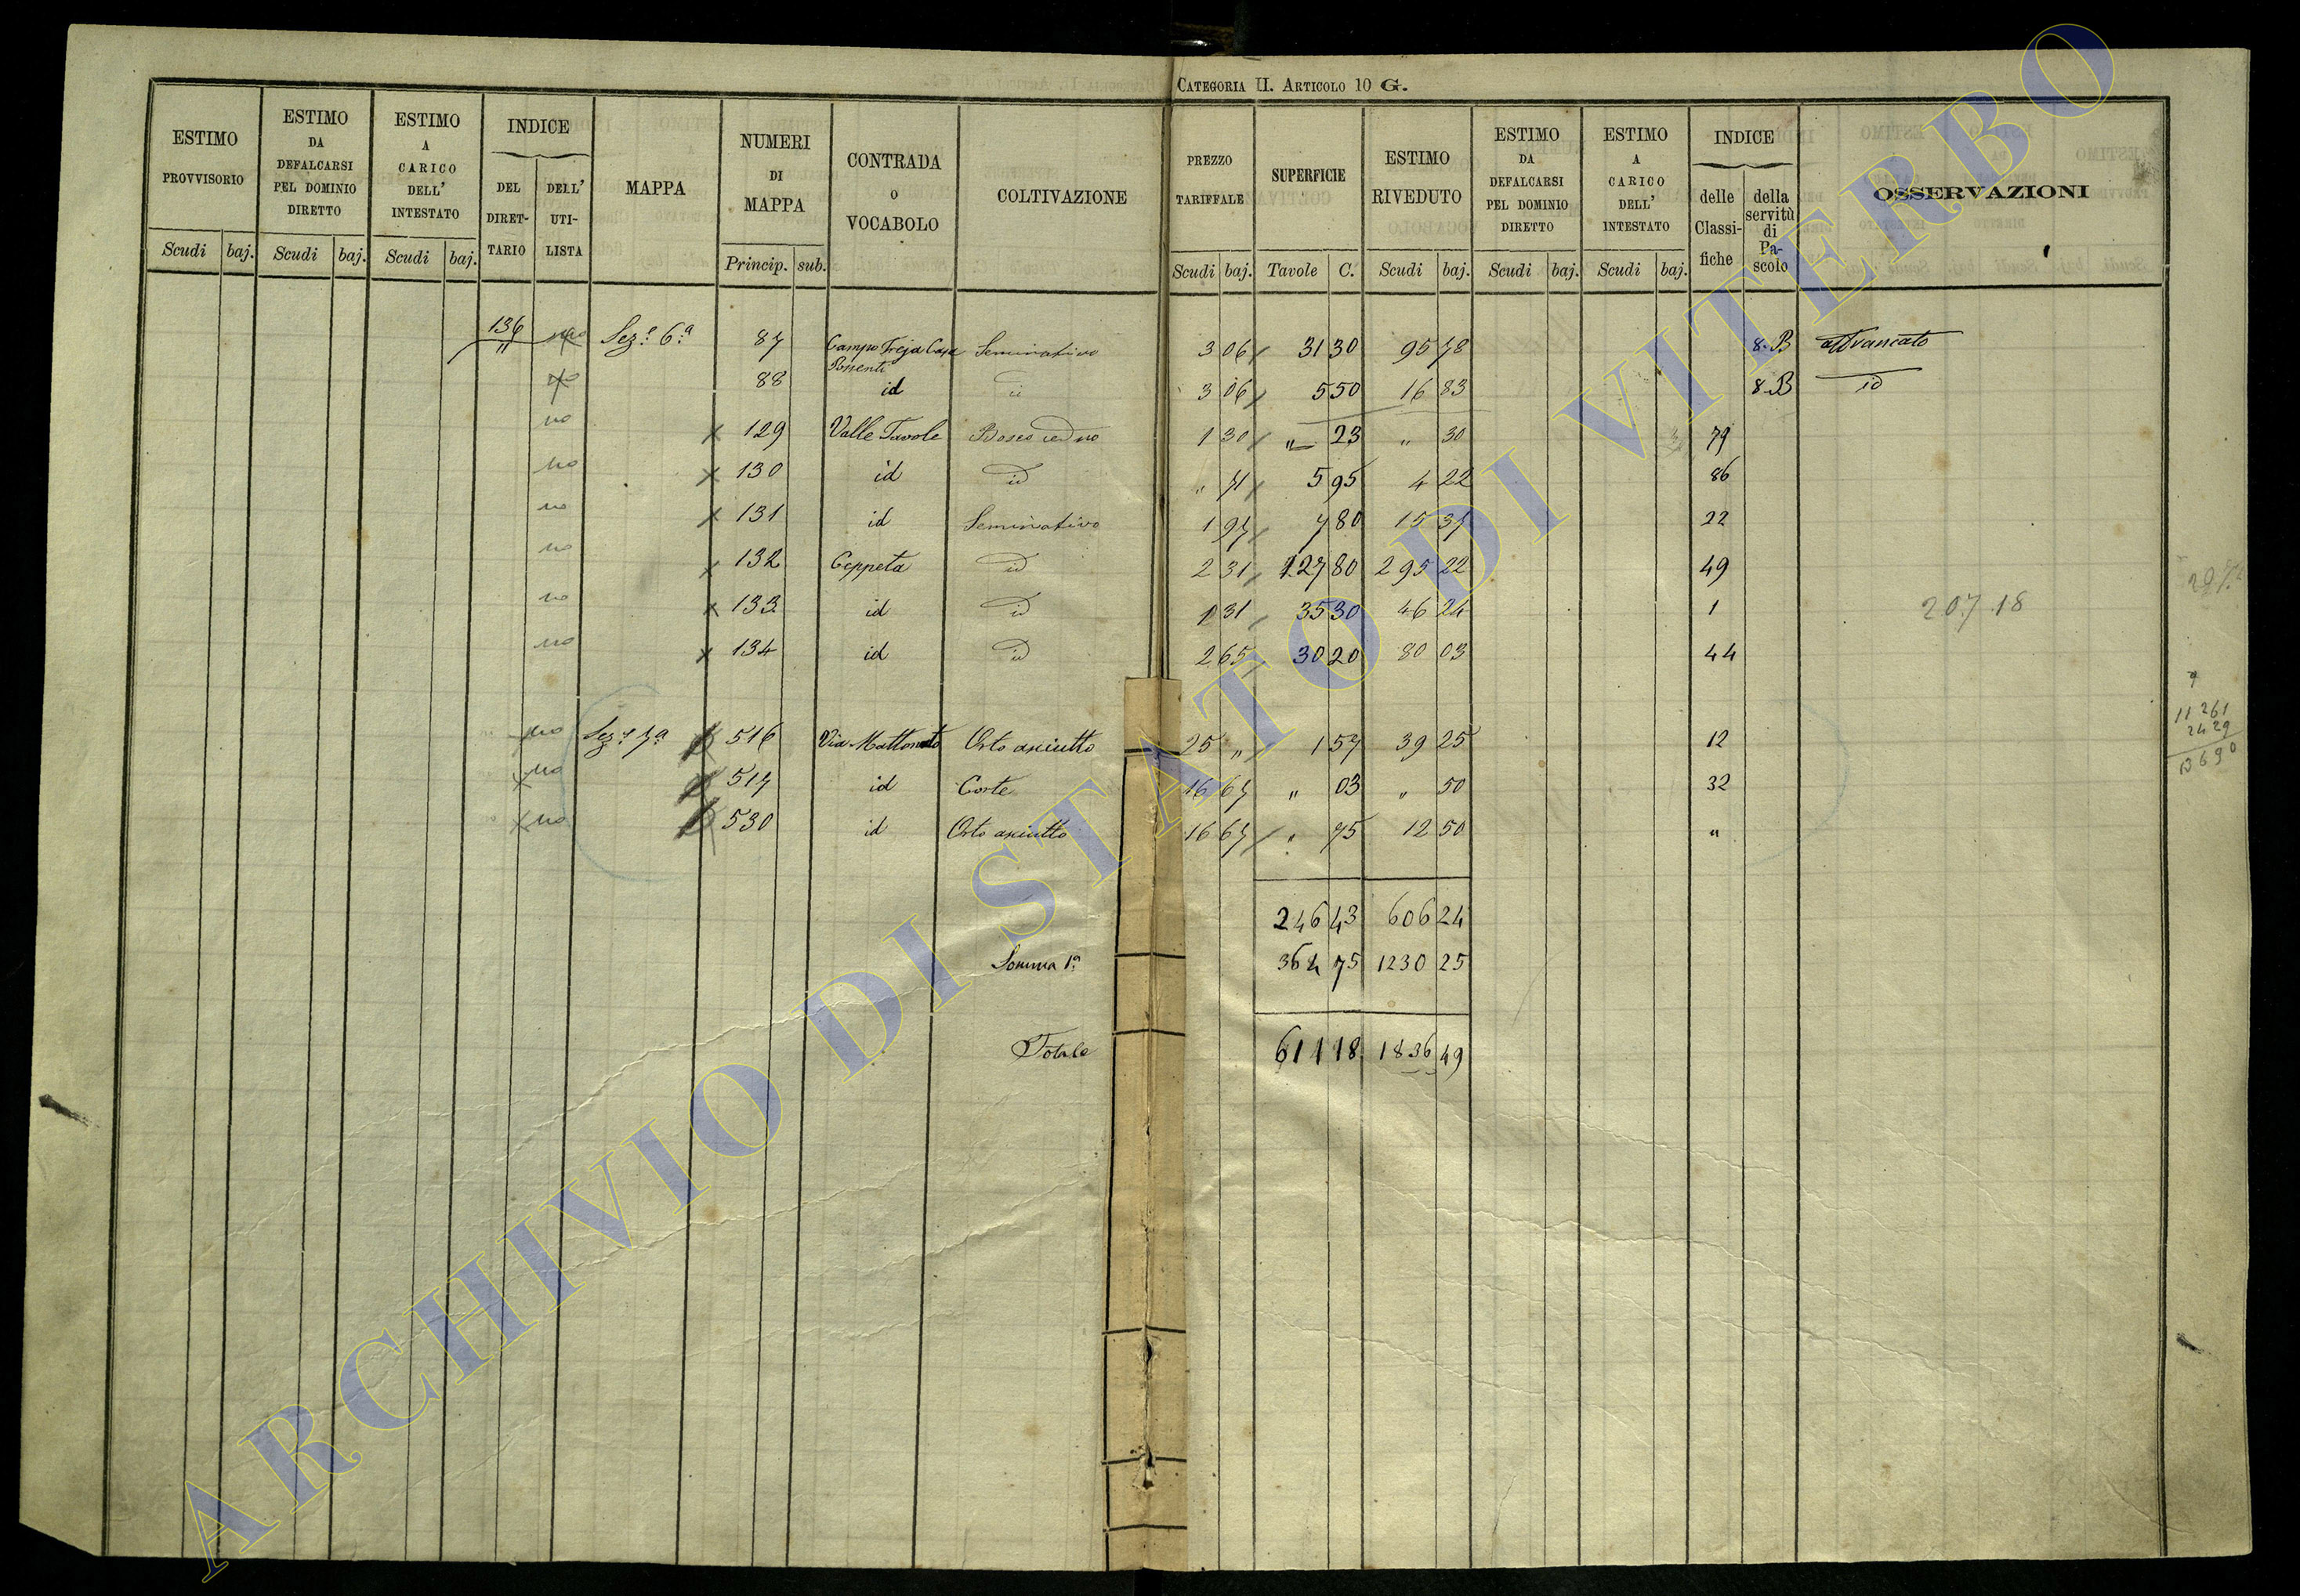 CATEGORIA II. ARTICOLO 10 G.
ESTIMO PROVVISORIO Scudi baj.
ESTIMO DA DEFALCARSI PEL DOMINIO DIRETTO Scudi baj.
ESTIMO A CARICO DELL' INTESTATO Scudi baj.
INDICE DEL DIRET-TARIO DELL' UTI-LISTA
MAPPA
NUMERI DI MAPPA Princip. sub.
CONTRADA O VOCABOLO
COLTIVAZIONE
PREZZO TARIFFALE Scudi baj.
SUPERFICIE Tavole C.
ESTIMO RIVEDUTO Scudi baj.
ESTIMO DA DEFALCARSI PEL DOMINIO DIRETTO Scudi baj.
ESTIMO A CARICO DELL' INTESTATO Scudi baj.
INDICE delle Classi-fiche della servitù di Pa-scolo
OSSERVAZIONI
136 " no Sez.e 6.a 87 Campo Freja Casa Possenti Seminativo 3 06 31 30 95 78 8.B affrancato
no 88 id id 3 06 5 50 16 83 8.B id
no x 129 Valle Tavole Bosco ceduo 1 30 " 23 " 30 79
no x 130 id id " 71 5 95 4 22 86
no x 131 id Seminativo 1 97 7 80 15 37 22
no x 132 Ceppeta id 2 31 127 80 295 22 49
no x 133 id id 1 31 35 30 46 24 1
207.18
no x 134 id id 2 65 30 20 80 03 44
no Sez.e 7.a 516 Via Mattonato Orto asciutto 25 " 1 57 39 25 12
x no 517 id Corte 16 67 " 03 " 50 32
x no 530 id Orto asciutto 16 67 " 75 12 50 "
11 261
24 29
13690
246 43 606 24
Somma 1.a 364 75 1230 25
Totale 611 18 1836 49
ARCHIVIO DI STATO DI VITERBO